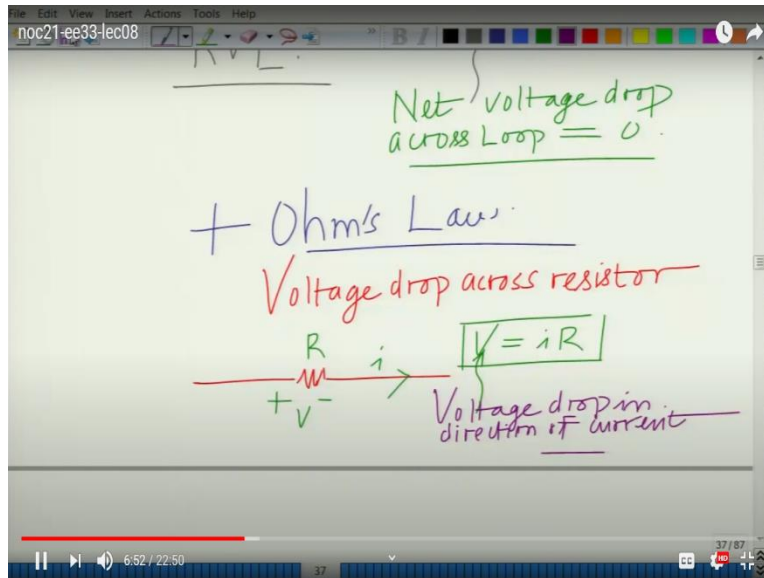 File Edit View Insert Actions Tools Help
noc21-ee33-lec08
B I
KVL.
Net voltage drop
across Loop = 0.
+ Ohm's Law.
Voltage drop across resistor
R
i
V = iR
+ V -
Voltage drop in
direction of current
37/87
6:52 / 22:50
CC
HD
37